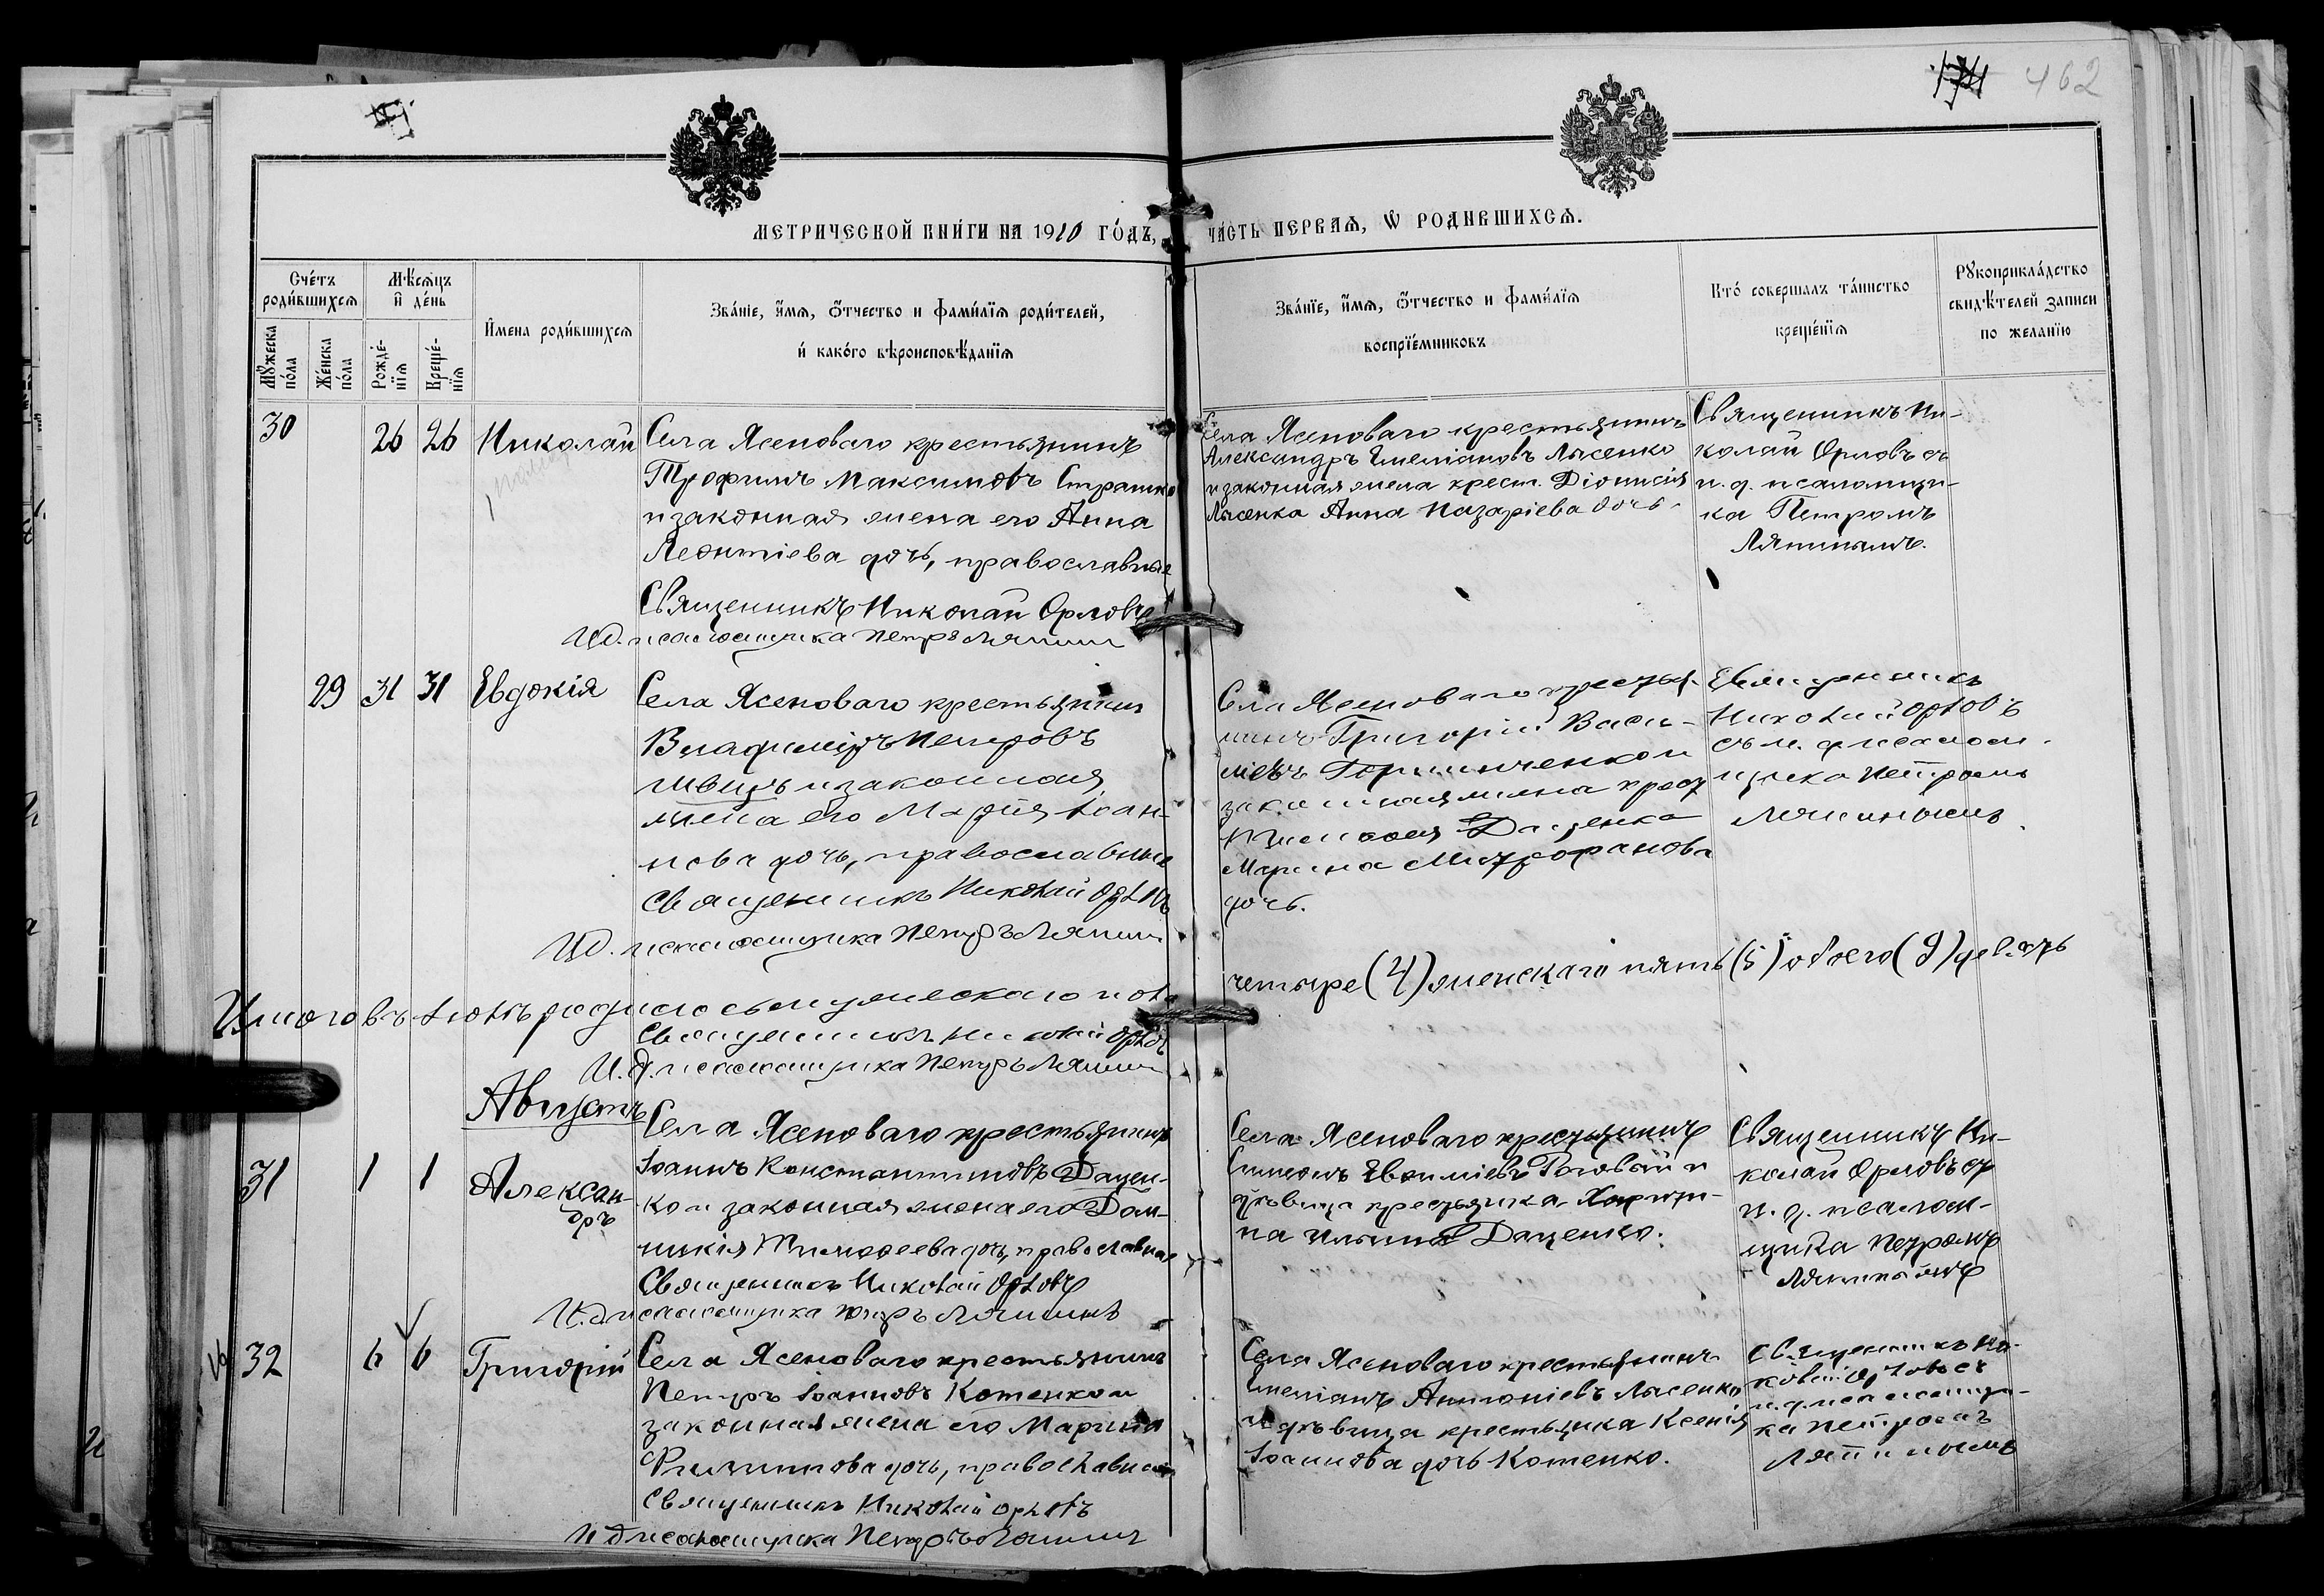 462
МЕТРИЧЕСКОЙ КНИ́ГИ НА 1910 ГО́ДЪ,
ЧА́СТЬ ПЕРВАѦ, Ѡ РОДИВШИХСѦ.
Счетъ роди́вшихсѧ
Мѣсѧцъ и де́нь
Мꙋжеска по́ла
Же́нска по́ла
Рожде́-нїѧ
Креще́-нїѧ
И́мена роди́вшихсѧ
Зва́нїе, и́мѧ, ѻ҆́тчество и фами́лїѧ роди́телей,
и́ како́го вѣроисповѣ́данїѧ
Зва́нїе, и́мѧ, ѻ҆́тчество и фами́лїѧ
воспрїе́мниковъ
Кто́ совершалъ та́инство
креще́нїѧ
Рꙋкоприкла́дство
свидѣ́телей записи
по желанїю
30
26 26
Николай
Села Ясеноваго крестьянинъ
Трофимъ Максимовъ Страшко
и законная жена его Анна
Леонтіева дочь, православные
Священникъ Николай Орловъ
И.д. псаломщика Петръ Ляпинъ
Села Ясеноваго крестьянинъ
Александръ Емеліановъ Лысенко
и законная жена крест. Діонисія
Лысенка Анна Назаріева дочь.
Священникъ Ни-
колай Орловъ съ
и. д. псаломщи-
ка Петромъ
Ляпинымъ.
29 31 31
Евдокія
Села Ясеноваго крестьянинъ
Владиміръ Петровъ
Швецъ и законная
жена его Марія Іоан-
нова дочь, православные
Священникъ Николай Орловъ
И.д. псаломщика Петръ Ляпинъ
Села Ясеноваго крестья-
нинъ Григорій Васи-
ліевъ и
законная жена крест
Тимоѳея Даценка
Марина Митрофанова
дочь.
Священникъ
Николай Орловъ
съ и. д. псалом-
щика Петромъ
Ляпинымъ.
Итого въ іюлѣ родилось мужескаго пола
четыре (4) женскаго пять (5) обоего (9) девять
Священникъ Николай Орловъ
И. д. псаломщика Петръ Ляпинъ
Августъ
31 1 1
Алексан-
дръ
Села Ясеноваго крестьянинъ
Іоаннъ Константиновъ Дацен-
ко и законная жена его Дом-
никія Тимоѳеева дочь, православные
Священникъ Николай Орловъ
И.д. псаломщика Петръ Ляпинъ
Села Ясеноваго крестьянинъ
Симеонъ Евѳиміевъ Роговый и
дѣвица крестьянка Харити-
на Даценко.
Священникъ Ни-
колай Орловъ съ
и. д. псалом-
щика Петромъ
Ляпинымъ
32 6 6
Григорій
Села Ясеноваго крестьянинъ
Петръ Іоанновъ Котенко и
законная жена его Марина
Филиппова дочь, православные
Священникъ Николай Орловъ
И д псаломщика Петръ Ляпинъ
Села Ясеноваго крестьянинъ
Емеліанъ Антоніевъ Лысенко
и дѣвица крестьянка Ксенія
Іоаннова дочь Котенко.
Священникъ Ни-
колай Орловъ съ
и. д. псаломщи-
ка Петромъ
Ляпинымъ